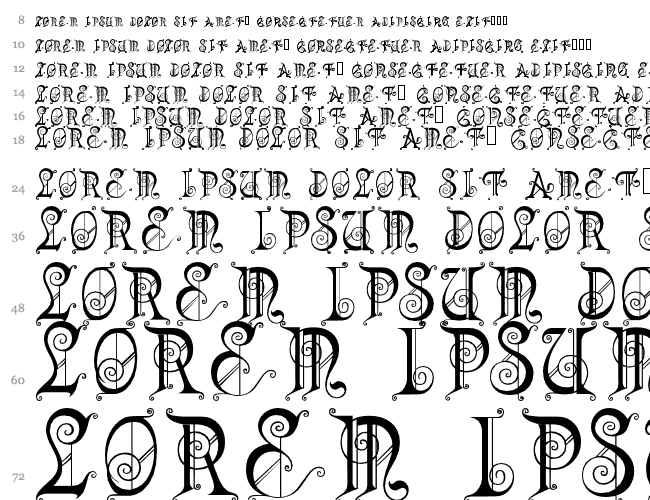 8 LOREM IPSUM DOLOR SIT AMET□ CONSECTETUER ADIPISCING ELIT□□□
10 LOREM IPSUM DOLOR SIT AMET□ CONSECTETUER ADIPISCING ELIT□□□
12 LOREM IPSUM DOLOR SIT AMET□ CONSECTETUER ADIPISCING E
14 LOREM IPSUM DOLOR SIT AMET□ CONSECTETUER ADI
16 LOREM IPSUM DOLOR SIT AMET□ CONSECTETUER
18 LOREM IPSUM DOLOR SIT AMET□ CONSECTE
24 LOREM IPSUM DOLOR SIT AMET□
36 LOREM IPSUM DOLOR S
48 LOREM IPSUM DO
60 LOREM IPSU
72 LOREM IPS